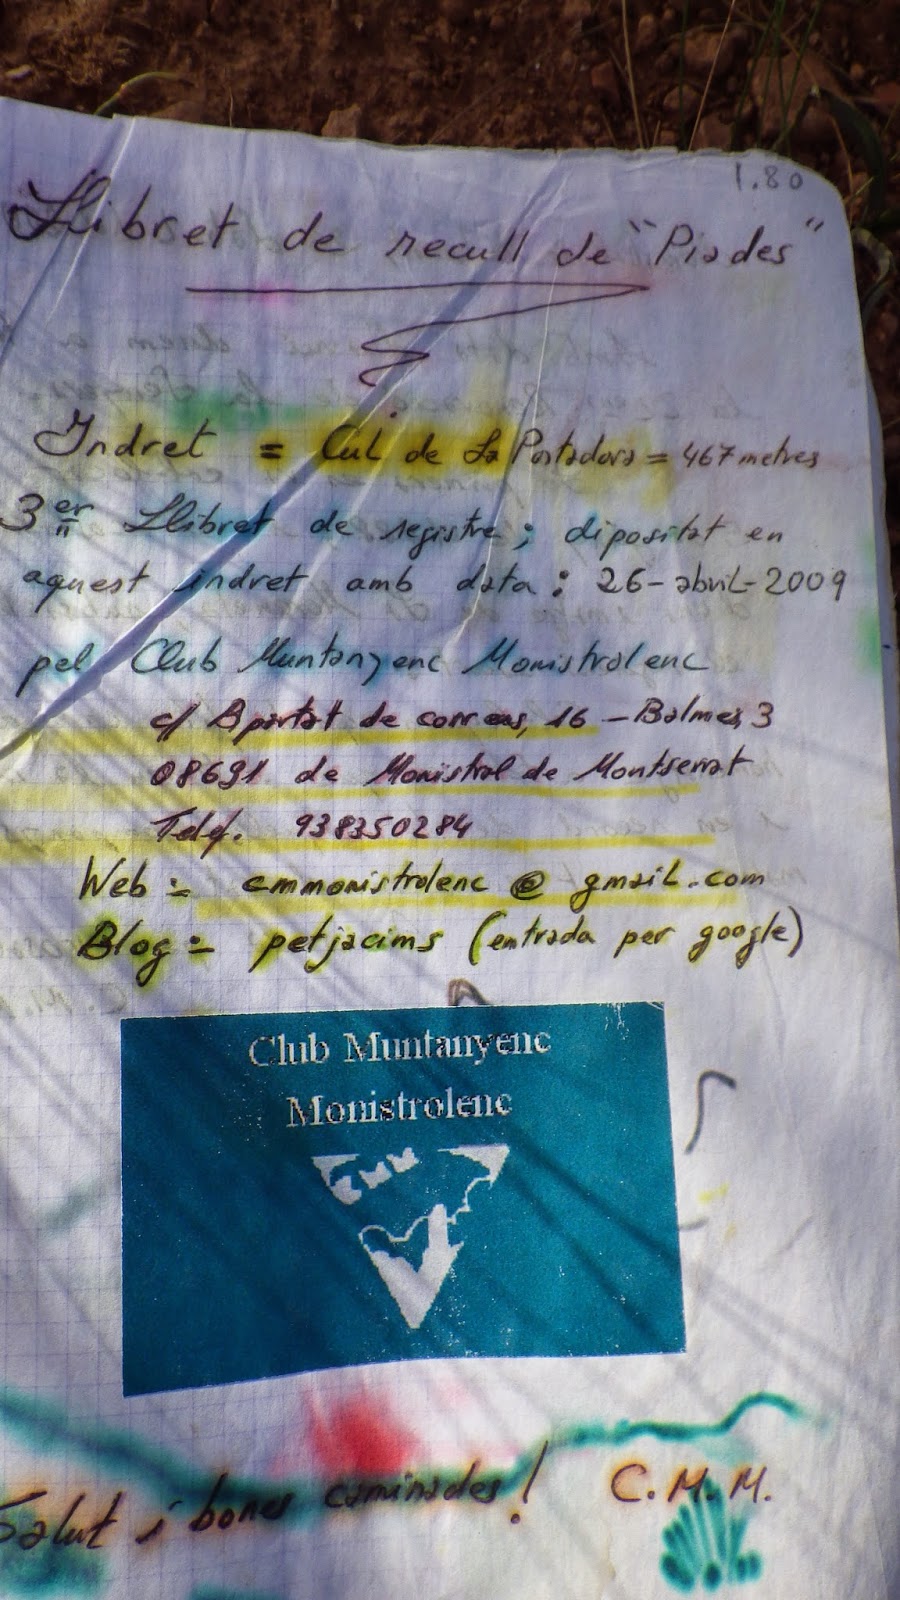 1.80
Llibret de recull de "Piades"
Indret = Cul de La Portadora = 467 metres
3er Llibret de registre; dipositat en
aquest indret amb data: 26-abril-2009
pel Club Muntanyenc Monistrolenc
c/ Apartat de correus, 16 - Balmes, 3
08691 de Monistrol de Montserrat
Telf. 938350284
Web:= cmmonistrolenc @ gmail.com
Blog:= petjacims (entrada per google)
Club Muntanyenc
Monistrolenc
CMM
Salut i bones caminades! C.M.M.